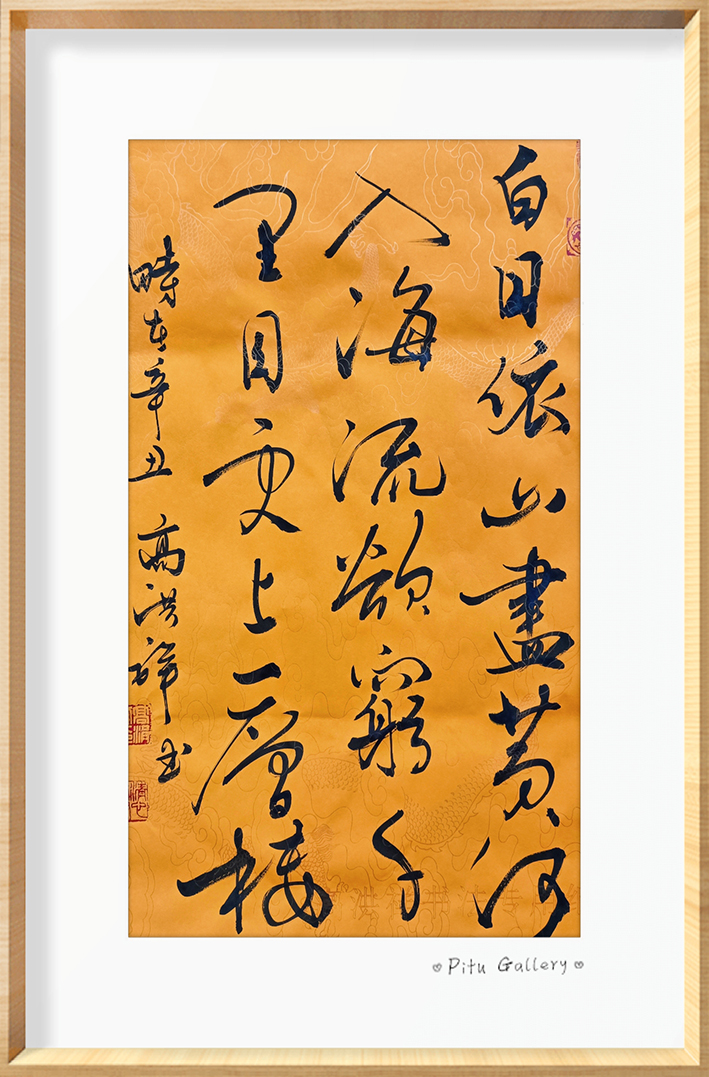 白日依山盡黃河
入海流欲窮千
里目更上一層樓
時在辛丑 高洪祥书
Pitu Gallery